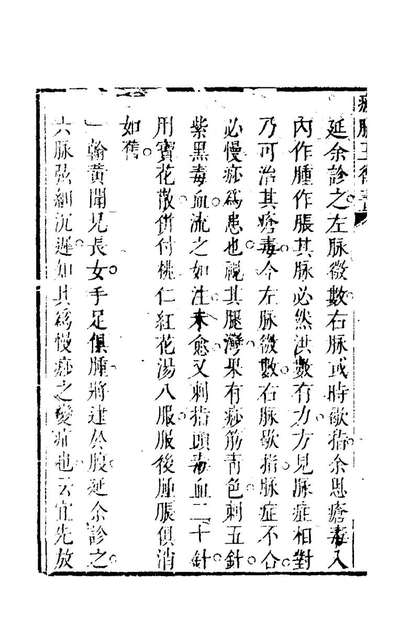 延余診之左脉微數右脉或時歇指余思瘡毒入
內作腫作脹其脉必然洪數有力方見脉症相對
乃可治其瘡毒今左脉微數右脉歇指脉症不合
必慢痧爲患也視其腿灣果有痧筋青色刺五針
紫黑毒血流之如注未愈又刺指頭毒血二十針
用寶花散併付桃仁紅花湯八服服後腫脹俱消
如舊
一翰黄聞見長女手足俱腫將逮於腹延余診之
六脉弦細沉遲如其爲慢痧之變症也云宜先放